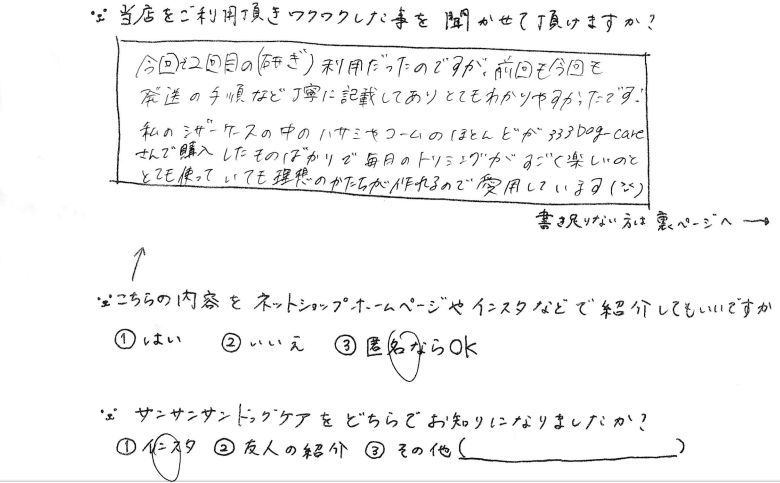 当店をご利用頂きワクワクした事を聞かせて頂けますか?
今回も2回目の(研ぎ)利用だったのですが、前回も今回も
発送の手順など丁寧に記載してありとてもわかりやすかったです!
私のシザーケースの中のハサミやコームのほとんどが333Dog-care
さんで購入したものばかりで毎日のトリミングがすごく楽しいのと
とても使っていても理想のかたちが作れるので愛用しています(^^)
書き足りない方は裏ページへ→
↑
こちらの内容をネットショップホームページやインスタなどで紹介してもいいですか
①はい ②いいえ ③匿名ならOK
サンサンサンドッグケアをどちらでお知りになりましたか?
①インスタ ②友人の紹介 ③その他( )